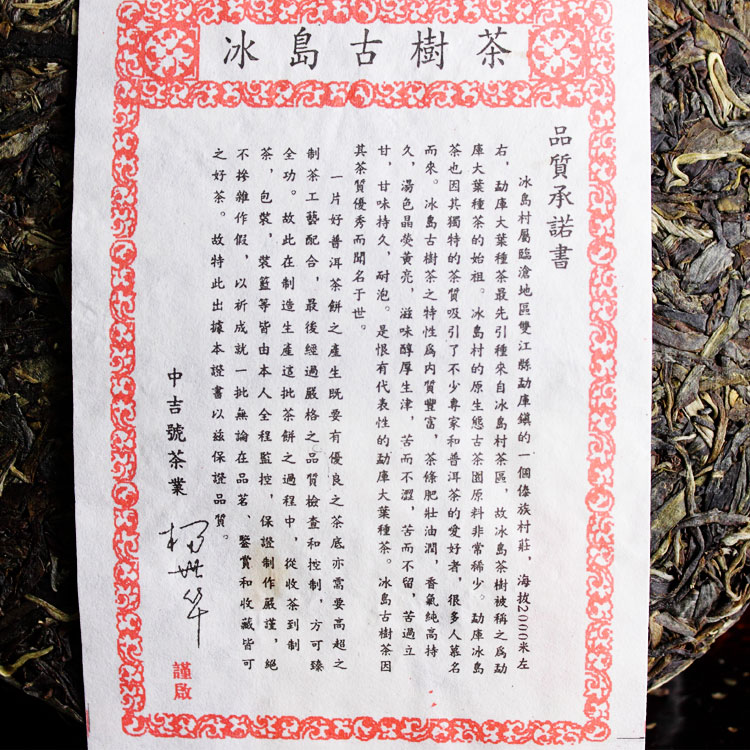 冰島古樹茶
品質承諾書
冰島村屬臨滄地區雙江縣勐庫鎮的一個傣族村莊，海拔2000米左
右，勐庫大葉種茶最先引種來自冰島村茶區，故冰島茶樹被稱之為勐
庫大葉種茶的始祖。冰島村的原生態古茶園原料非常稀少。勐庫冰島
茶也因其獨特的茶質吸引了不少專家和普洱茶的愛好者，很多人慕名
而來。冰島古樹茶之特性為内質豐富，茶條肥壯油潤，香氣純高持
久，湯色晶熒黃亮，滋味醇厚生津，苦而不澀，苦而不留，苦過立
甘，甘味持久，耐泡。是恨有代表性的勐庫大葉種茶。冰島古樹茶因
其茶質優秀而聞名于世。
一片好普洱茶餅之產生既要有優良之茶底亦需要高超之
制茶工藝配合，最後經過嚴格之品質檢查和控制，方可臻
全功。故此在制造生產這批茶餅之過程中，從收茶到制
茶，包裝，裝籃等皆由本人全程監控，保證制作嚴謹，絕
不摻雜作假，以祈成就一批無論在品茗、鑒賞和收藏皆可
之好茶。故特此出據本證書以茲保證品質。
中吉號茶業
楊世華
謹啟